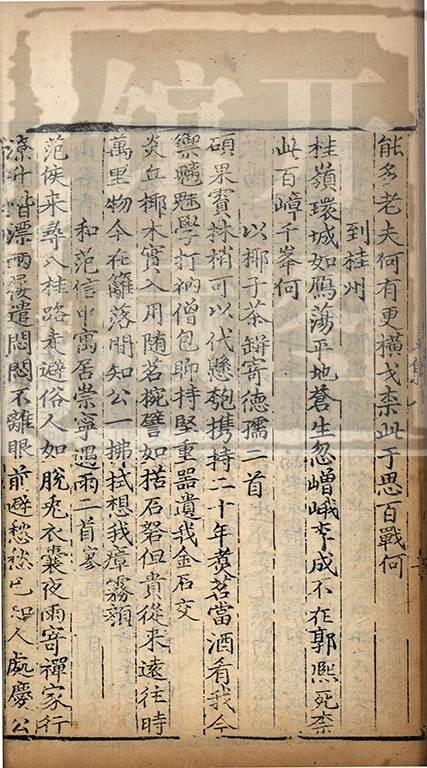 能多老夫何有更橫戈柰此于思百戰何
到桂州
桂嶺環城如鴈蕩平地蒼生忽嶒峨李成不在郭熙死柰
此百嶂千峯何
以椰子茶缾寄德孺二首
碩果賓林梢可以代懸匏攜持二十年煑茗當酒看我今
禦魑魅學打衲僧包聊持堅重器遺我金石交
炎丘椰木實入用随茗椀譬如楛石砮但貴從來遠往時
萬里物今在籬落間知公一拂拭想我瘴霧顏
和范信中寓居崇寧遇雨二首
范侯來尋八桂路走避俗人如脫兔衣囊夜雨寄禪家行
潦升階漂兩屨遣悶悶不離眼前避愁愁已知人處慶公